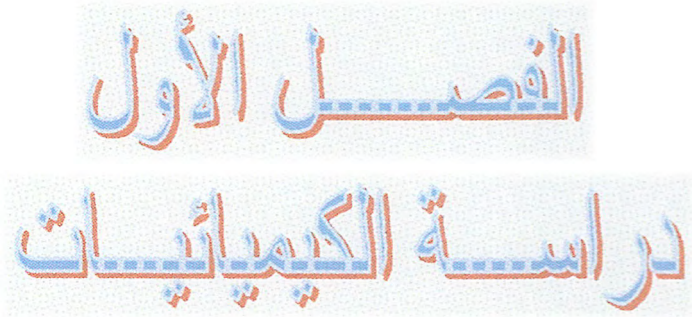 الفصل الأول
دراسة الكيميائيات